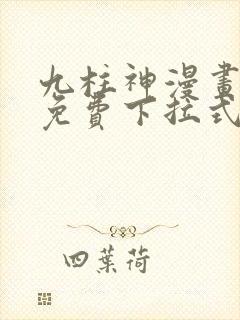 九柱神漫畫
免費下拉式
四葉荷